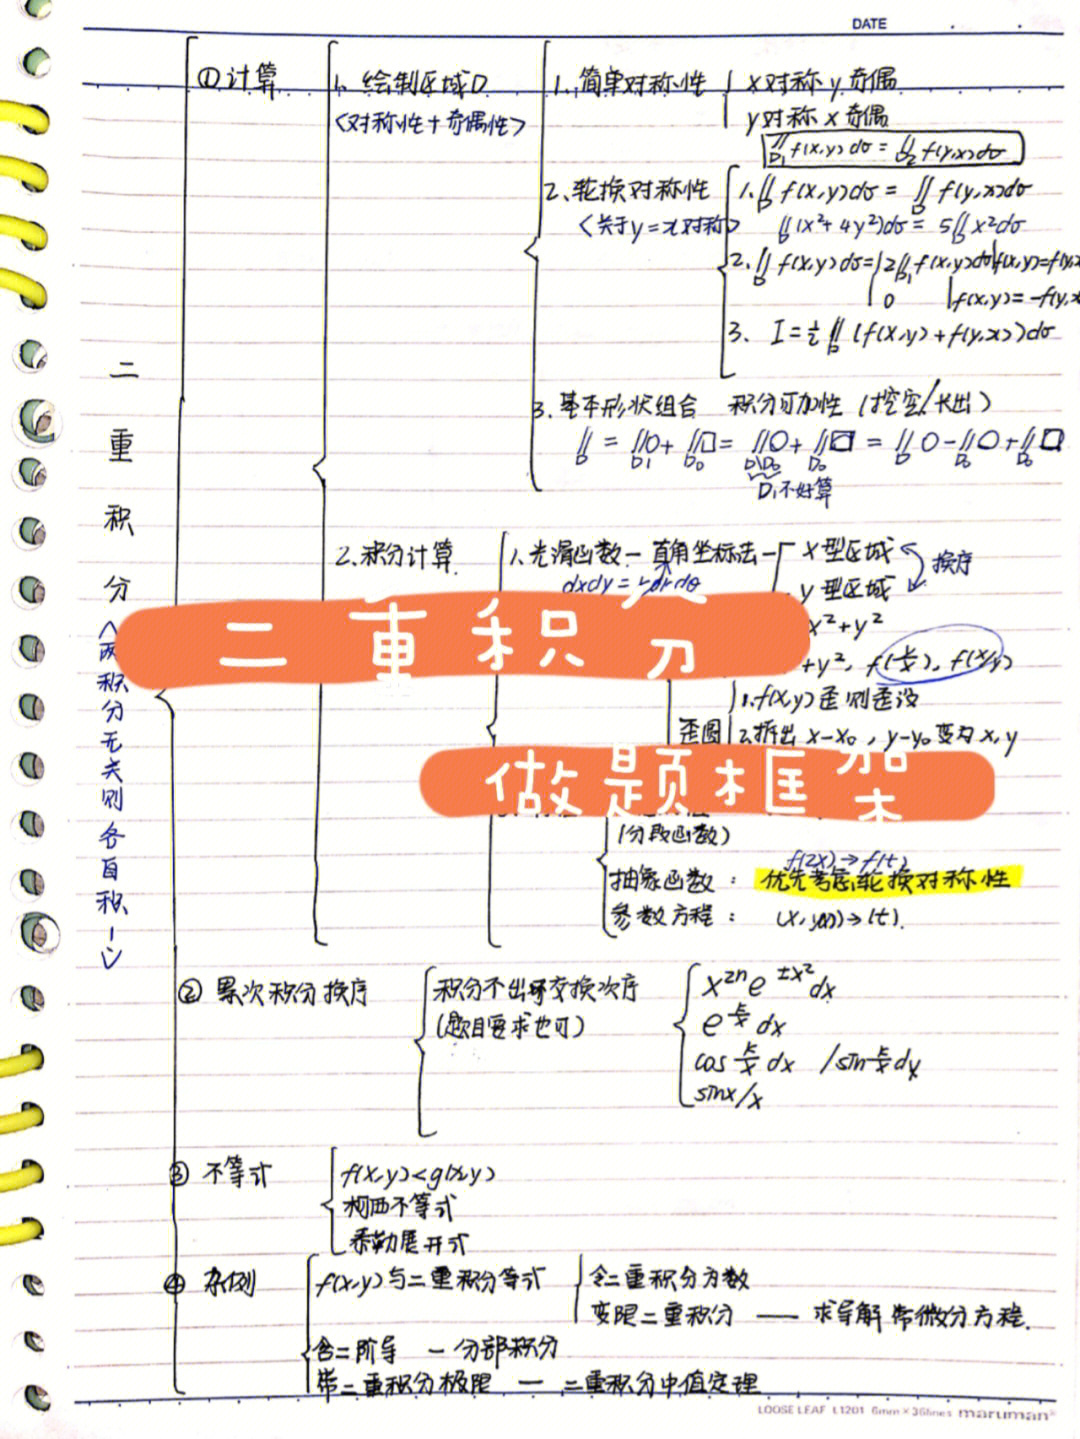 DATE
①计算
1. 绘制区域D
<对称性+奇偶性>
1. 简单对称性
x对称 y奇偶
y对称 x奇偶
∬D₁ f(x,y)dσ = ∬D₂ f(y,x)dσ
2. 轮换对称性
<关于y=x对称>
1. ∬D f(x,y)dσ = ∬D f(y,x)dσ
∬D (x²+4y²)dσ = 5∬D x²dσ
2. ∬D f(x,y)dσ = 2∬D₁ f(x,y)dσ f(x,y)=f(y,x
0 f(x,y)=-f(y,x
3. I=½∬D (f(x,y)+f(y,x))dσ
3. 基本形状组合 积分可加性 (挖空/长出)
∬D = ∬D₁○+∬D₀□ = ∬D\D₀○+∬D₀□ = ∬D○-∬D₀○+∬D₀□
D₁不好算
二重积分
<两积分无关则各自积->
2. 积分计算
1. 光滑函数-直角坐标法-
x型区域
y型区域
换序
dxdy=rdrdθ
x²+y²
+y², f(y/x), f(x/y)
歪圆
1. f(x,y)歪则歪设
2. 拆出 x-x₀, y-y₀ 变为x,y
二重积分
做题框架
(分段函数)
f(2x)→f(t)
抽象函数: 优先考虑轮换对称性
参数方程: (x,y(x))→(t).
② 累次积分换序
积分不出来交换次序
(题目要求也可)
x²ⁿe^±x²dx
e^k/x dx
cos k/x dx /sin k/x dx
sinx/x
③ 不等式
f(x,y)<g(x,y)
柯西不等式
泰勒展开式
④ 杂例
f(x,y)与二重积分等式
令二重积分为数
变限二重积分 —— 求导解常微分方程.
含二阶导 — 分部积分
带二重积分极限 — 二重积分中值定理
LOOSE LEAF L1201 6mm×36lines maruman®